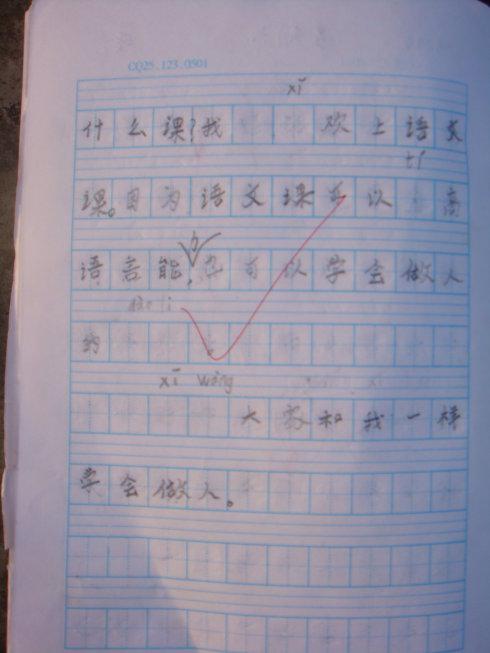 CQ25.123.0501
xǐ
什么课?我 欢上语文
tí
课。因为语文课可以 高
力
语言能,也可以学会做人
dào lǐ
的
xī wàng
大家和我一样
学会做人。